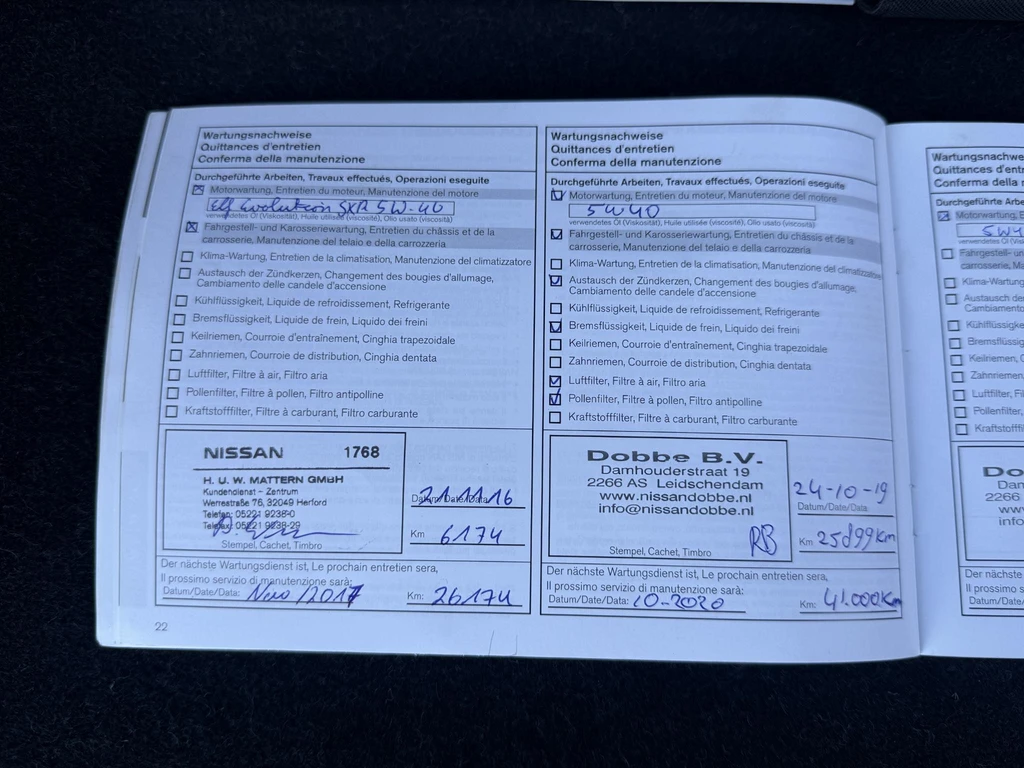 Wartungsnachweise
Quittances d'entretien
Conferma della manutenzione
Durchgeführte Arbeiten, Travaux effectués, Operazioni eseguite
Motorwartung, Entretien du moteur, Manutenzione del motore
Elf Evolution SXR 5W-40
verwendetes Öl (Viskosität), Huile utilisée (viscosité), Olio usato (viscosità)
Fahrgestell- und Karosseriewartung, Entretien du châssis et de la
carrosserie, Manutenzione del telaio e della carrozzeria
Klima-Wartung, Entretien de la climatisation, Manutenzione del climatizzatore
Austausch der Zündkerzen, Changement des bougies d'allumage,
Cambiamento delle candele d'accensione
Kühlflüssigkeit, Liquide de refroidissement, Refrigerante
Bremsflüssigkeit, Liquide de frein, Liquido dei freini
Keilriemen, Courroie d'entraînement, Cinghia trapezoidale
Zahnriemen, Courroie de distribution, Cinghia dentata
Luftfilter, Filtre à air, Filtro aria
Pollenfilter, Filtre à pollen, Filtro antipolline
Kraftstofffilter, Filtre à carburant, Filtro carburante
NISSAN 1768
H. U. W. MATTERN GMBH
Kundendienst - Zentrum
Werrestraße 76, 32049 Herford
Telefon: 05221 9238-0
Telefax: 05221 9238-29
Stempel, Cachet, Timbro
21.11.16
Datum/Date/Data:
Km 6174
Der nächste Wartungsdienst ist, Le prochain entretien sera,
Il prossimo servizio di manutenzione sarà:
Datum/Date/Data: Nov/2017 Km: 26174
22
Wartungsnachweise
Quittances d'entretien
Conferma della manutenzione
Durchgeführte Arbeiten, Travaux effectués, Operazioni eseguite
Motorwartung, Entretien du moteur, Manutenzione del motore
5W40
verwendetes Öl (Viskosität), Huile utilisée (viscosité), Olio usato (viscosità)
Fahrgestell- und Karosseriewartung, Entretien du châssis et de la
carrosserie, Manutenzione del telaio e della carrozzeria
Klima-Wartung, Entretien de la climatisation, Manutenzione del climatizzatore
Austausch der Zündkerzen, Changement des bougies d'allumage,
Cambiamento delle candele d'accensione
Kühlflüssigkeit, Liquide de refroidissement, Refrigerante
Bremsflüssigkeit, Liquide de frein, Liquido dei freini
Keilriemen, Courroie d'entraînement, Cinghia trapezoidale
Zahnriemen, Courroie de distribution, Cinghia dentata
Luftfilter, Filtre à air, Filtro aria
Pollenfilter, Filtre à pollen, Filtro antipolline
Kraftstofffilter, Filtre à carburant, Filtro carburante
Dobbe B.V.
Damhouderstraat 19
2266 AS Leidschendam
www.nissandobbe.nl
info@nissandobbe.nl
RB
Stempel, Cachet, Timbro
24-10-19
Datum/Date/Data:
Km 25899Km
Der nächste Wartungsdienst ist, Le prochain entretien sera,
Il prossimo servizio di manutenzione sarà:
Datum/Date/Data: 10-2020 Km: 41.000Km
Wartungsnachwe
Quittances d'ent
Conferma della m
Durchgeführte Arbei
Motorwartung, E
5W4
verwendetes Öl (Vis
Fahrgestell- un
carrosserie, Ma
Klima-Wartung
Austausch der
Cambiamento
Kühlflüssigke
Bremsflüssig
Keilriemen, C
Zahnriemen,
Luftfilter, Fil
Pollenfilter,
Kraftstofffil
Do
Damh
2266
ww
info
Der nächste
Il prossimo s
Datum/Dat